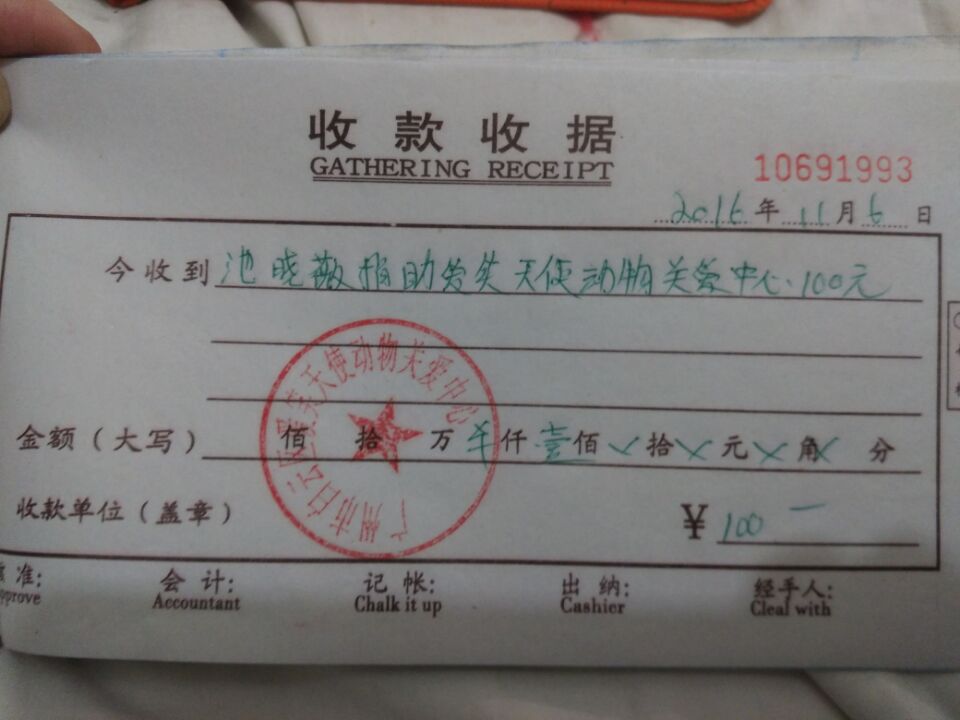 收款收据
GATHERING RECEIPT
10691993
2016年11月6日
今收到 池晓敏捐助爱笑天使动物关爱中心.100元
金额(大写) 佰 拾 万 仟 壹佰 拾 元 角 分
收款单位(盖章) ¥ 100 —
广州市白云区爱笑天使动物关爱中心
准: 会 计: 记 帐: 出 纳: 经手人:
pprove Accountant Chalk it up Cashier Cleal with